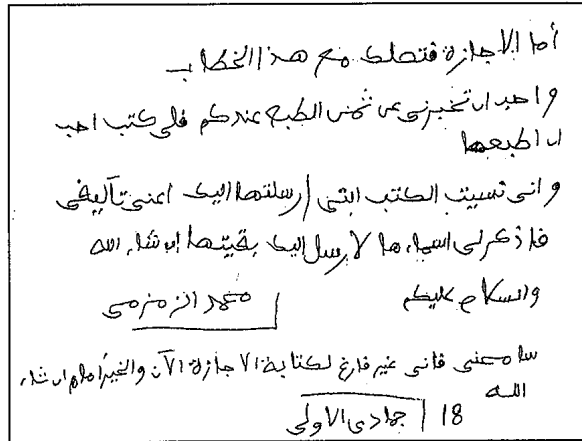 أما الاجازة فتصلك مع هذا الخطاب
واحب ان تخبرني عن ثمن الطبع عندكم فلي كتب احب
ان اطبعها
واني نسيت الكتب التي ارسلتها اليك اعني تآليفي
فاذكر لي اسماءها لارسل اليك بقيتها ان شاء الله
والسلام عليكم
محمد الزمزمي
سامحني فاني غير فارغ لكتابة الاجازة الآن والخير امام ان شاء
الله
18 جمادى الاولى